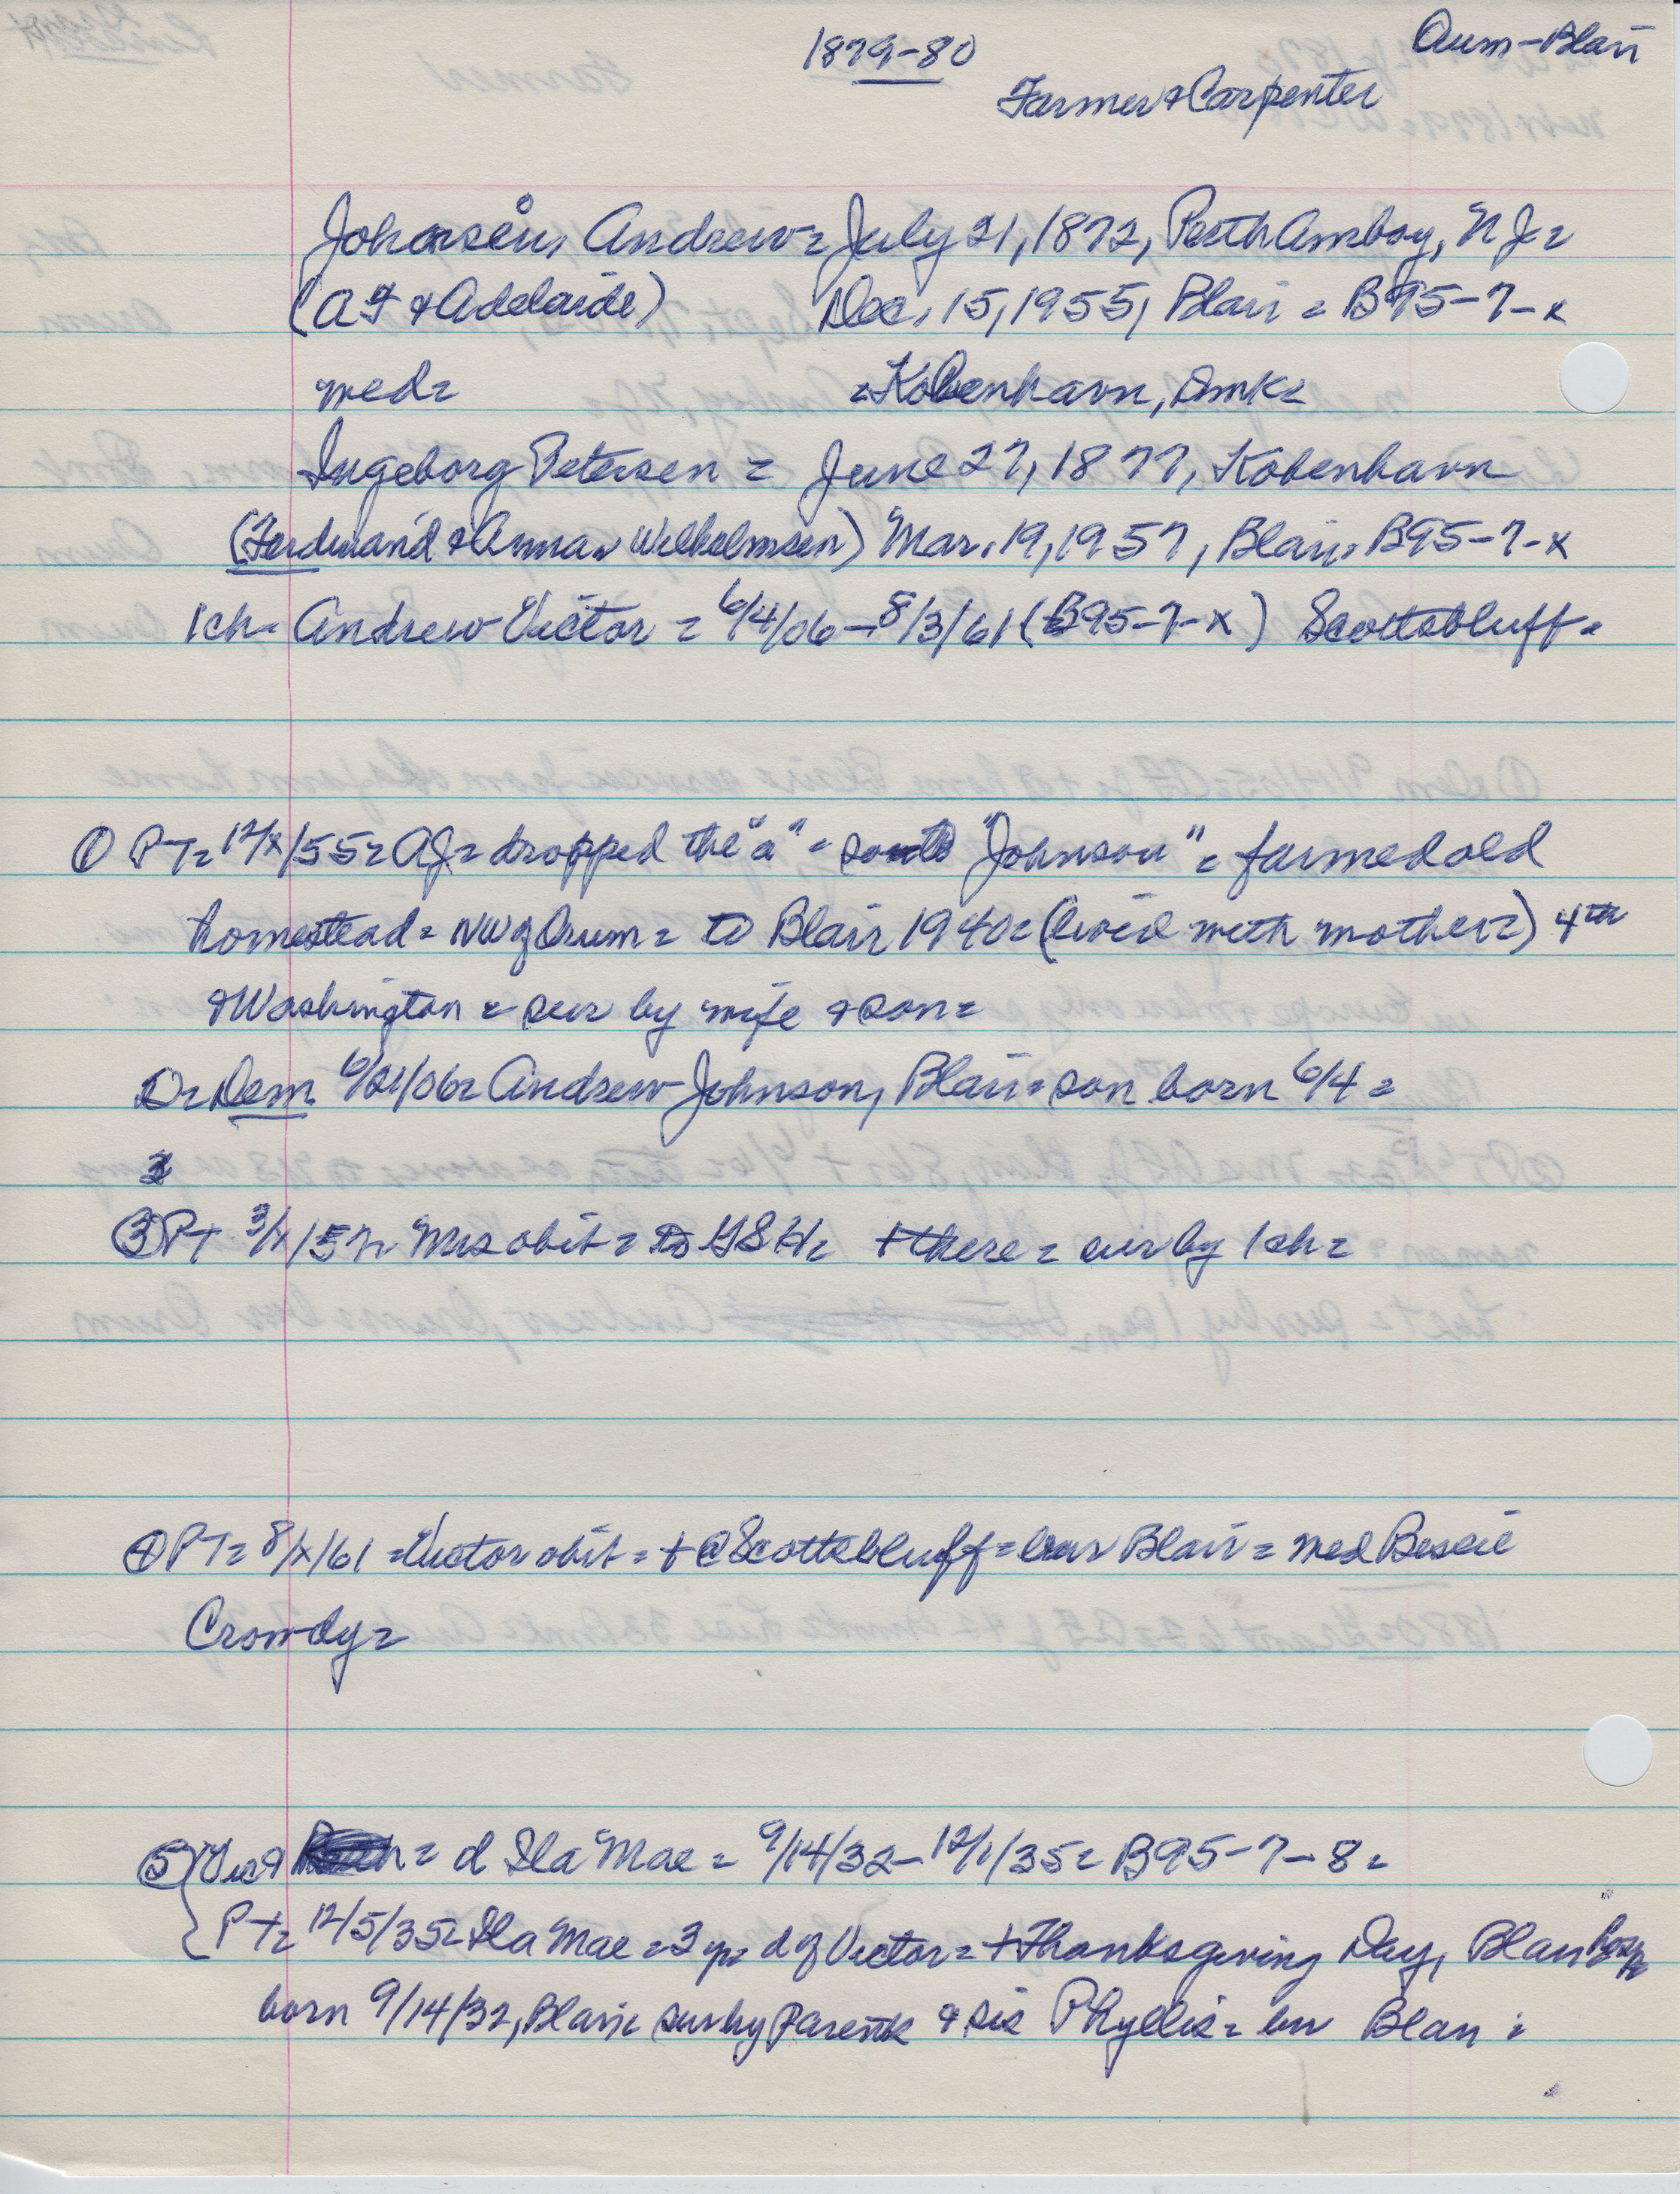 1879-80
Orum-Blair
Farmer & Carpenter
Johansen, Andrew = July 21, 1872, Perth Amboy, N J =
(AF & Adelaide) Dec. 15, 1955, Blair = B95-7-x
med = = Kobenhavn, Dmk =
Ingeborg Petersen = June 27, 1877, Kobenhavn
(Ferdinand & Anna Wilhelmsen) Mar. 19, 1957, Blair = B95-7-x
1 ch = Andrew Victor = 6/4/06 - 8/3/61 (B95-7-x) Scottsbluff =
① PT = 12/x/55 = AJ = dropped the "a" = "Johnson" = farmed old
homestead = NW of Orum = to Blair 1940 = (lived with mother =) 4th
& Washington = sur by wife & son =
② = Dem 6/21/06 = Andrew Johnson, Blair = son born 6/4 =
③ PT 3/x/57 = Mrs obit = to GSH = + there = sur by 1 ch =
④ PT = 8/x/61 = Victor obit = + @ Scottsbluff = bur Blair = med Bessie
Crowdy =
⑤ Vic & = d Ila Mae = 9/14/32 - 12/1/35 = B95-7-8 =
PT = 12/5/35 = Ila Mae = 3 yr = d of Victor = + Thanksgiving Day, Blair hosp
born 9/14/32, Blair = sur by parents & sis Phyllis = bur Blair =